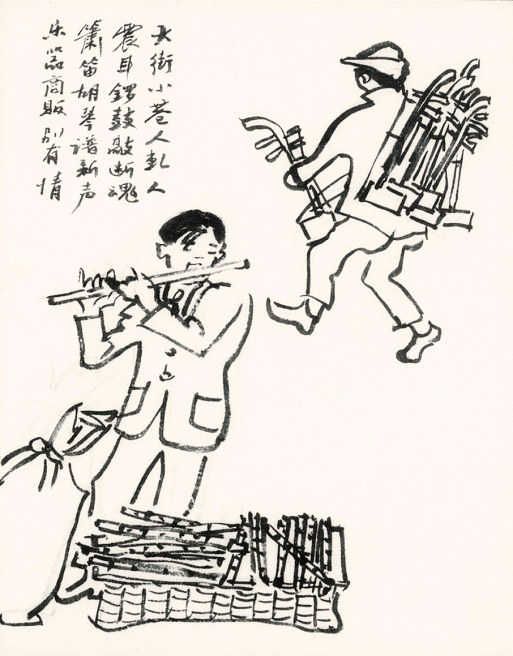 大街小巷人轧人
震耳锣鼓敲断魂
箫笛胡琴谱新声
乐器商贩别有情